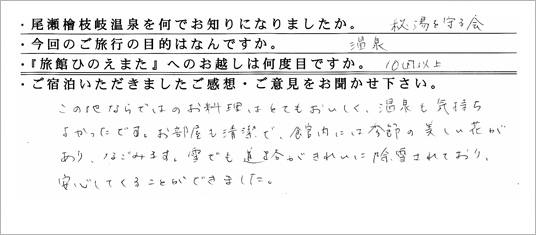 ・尾瀬檜枝岐温泉を何でお知りになりましたか。 秘湯を守る会
・今回のご旅行の目的はなんですか。 温泉
・『旅館ひのえまた』へのお越しは何度目ですか。 10回以上
・ご宿泊いただきましたご感想・ご意見をお聞かせ下さい。
この地ならではのお料理はとてもおいしく、温泉も気持ち
よかったです。お部屋も清潔で、館内には季節の美しい花が
あり、なごみます。雪でも道路がきれいに除雪されており、
安心してくることができました。